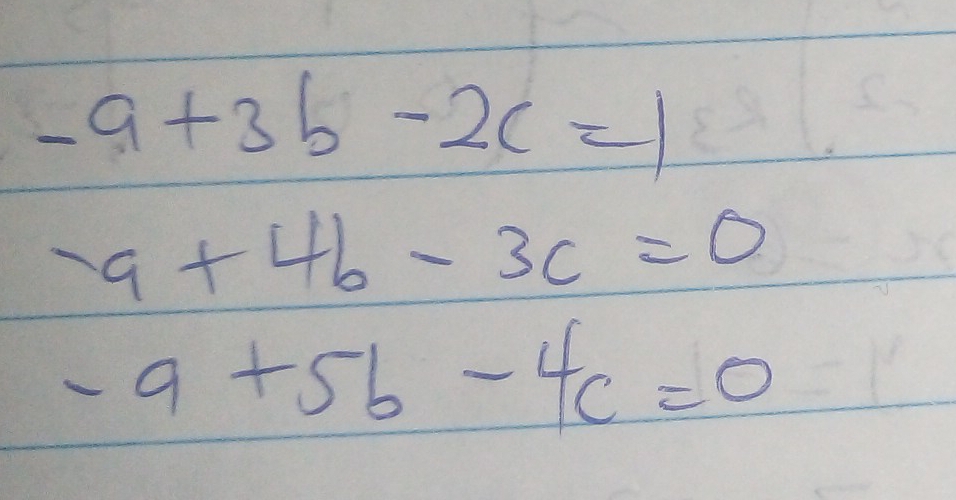 -a+3b-2c=1
-a+4b-3c=0
-a+5b-4c=0